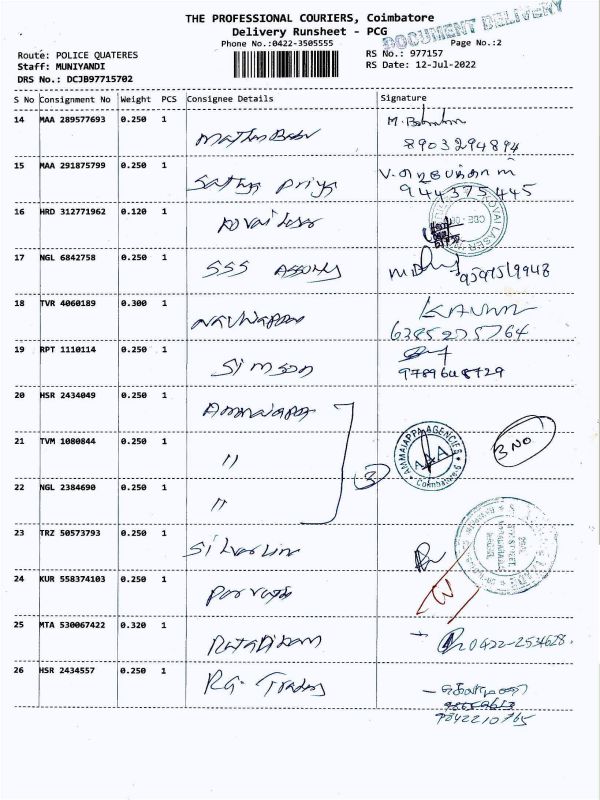 THE PROFESSIONAL COURIERS, Coimbatore
Delivery Runsheet - PCG
DOCUMENT DELIVERY
Phone No.:0422-3505555
Page No.:2
Route: POLICE QUATERES
RS No.: 977157
Staff: MUNIYANDI
RS Date: 12-Jul-2022
DRS No.: DCJB97715702
S No Consignment No Weight PCS Consignee Details Signature
14 MAA 289577693 0.250 1
8903294894
15 MAA 291875799 0.250 1 Sathya Priya
944375445
16 HRD 312771962 0.120 1 Kovai Laser
KOVAI LASER
17 NGL 6842758 0.250 1 SSS
18 TVR 4060189 0.300 1
6385275764
19 RPT 1110114 0.250 1 Simson
9789648729
20 HSR 2434049 0.250 1 Ammaiappa
21 TVM 1080844 0.250 1 "
3
AMMAIAPPA AGENCIES
AAA
Coimbatore
3 NO
22 NGL 2384690 0.250 1 "
23 TRZ 50573793 0.250 1 Silverline
24 KUR 558374103 0.250 1 Parvathi
25 MTA 530067422 0.320 1
0422-2534628.
26 HSR 2434557 0.250 1 RG Traders
9342210765